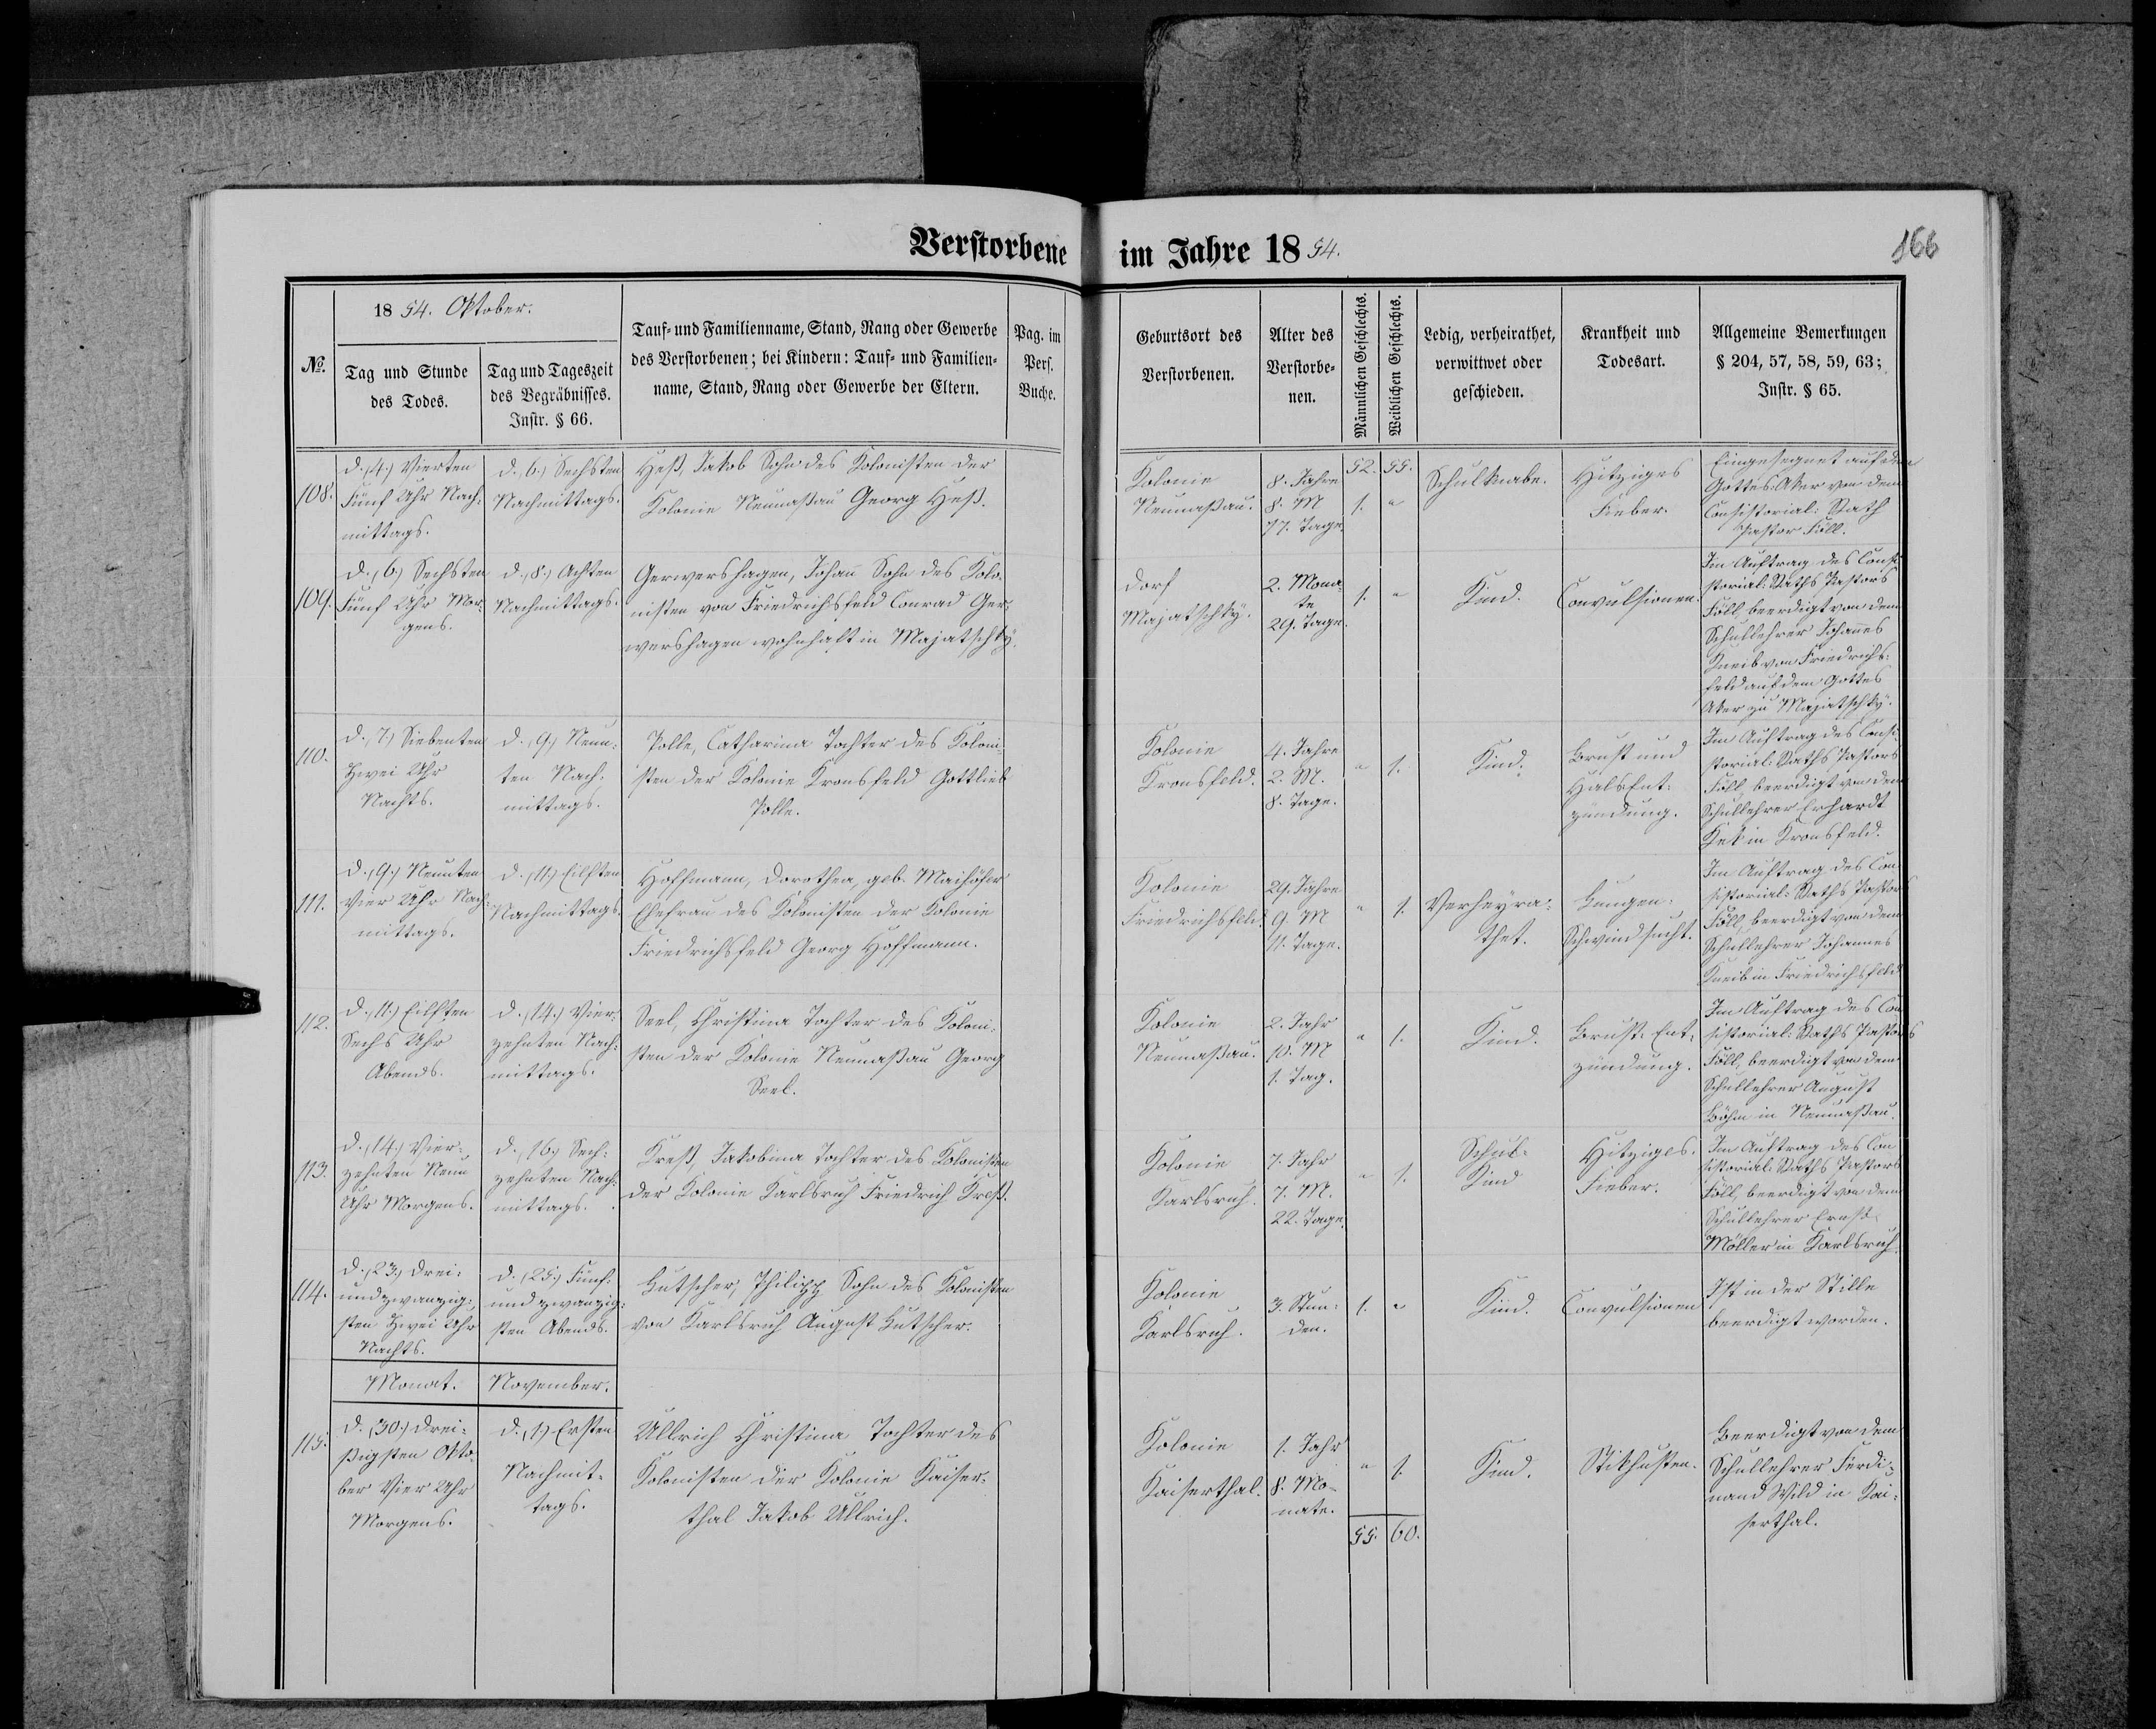 Verstorbene im Jahre 1854.
166
№.
1854. Oktober.
Tag und Stunde
des Todes.
Tag und Tageszeit
des Begräbnisses.
Instr. § 66.
Tauf- und Familienname, Stand, Rang oder Gewerbe
des Verstorbenen; bei Kindern: Tauf- und Familien-
name, Stand, Rang oder Gewerbe der Eltern.
Pag. im
Pers.
Buche.
Geburtsort des
Verstorbenen.
Alter des
Verstorbe-
nen.
Männlichen Geschlechts.
Weiblichen Geschlechts.
Ledig, verheirathet,
verwittwet oder
geschieden.
Krankheit und
Todesart.
Allgemeine Bemerkungen
§ 204, 57, 58, 59, 63;
Instr. § 65.
108.
d. (4.) Vierten
Fünf Uhr Nach-
mittags.
d. (6.) Sechsten
Nachmittags.
Heß, Jakob Sohn des Kolonisten der
Kolonie Neunaßau Georg Heß.
Kolonie
Neunaßau.
8. Jahre
8. M
17. Tage.
52. 55.
1. "
Schulknabe.
Hitziges
Fieber.
Eingesegnet auf dem
Gottes Aker von dem
Consistorial: Rath
Pastor Föll.
109.
d. (6.) Sechsten
Fünf Uhr Mor-
gens.
d. (8.) Achten
Nachmittags.
Gerwershagen, Johan Sohn des Kolo-
nisten von Friedrichsfeld Conrad Ger-
wershagen wohnhaft in Majatschky.
Dorf
Majatschky.
2. Mona-
te
29. Tage.
1. "
Kind.
Convulsionen.
Im Auftrag des Consi-
storial: Raths Pastors
Föll beerdigt von dem
Schullehrer Johanes
Kneib von Friedrichs-
feld auf dem Gottes
Aker zu Majatschky.
110.
d. (7.) Siebenten
Zwei Uhr
Nachts.
d. (9.) Neun-
ten Nach-
mittags.
Polle, Catharina Tochter des Koloni-
sten der Kolonie Kronsfeld Gottlieb
Polle.
Kolonie
Kronsfeld.
4. Jahre
2. M.
8. Tage.
" 1.
Kind.
Brust und
Hals Ent-
zündung.
Im Auftrag des Consi-
storial: Raths Pastors
Föll, beerdigt von dem
Schullehrer Erhardt
in Kronsfeld.
111.
d. (9.) Neunten
Vier Uhr Nach-
mittags.
d. (11.) Eilften
Nachmittags.
Hoffmann, Dorothea, geb. Maihöfer
Ehefrau des Kolonisten der Kolonie
Friedrichsfeld Georg Hoffmann.
Kolonie
Friedrichsfeld.
29. Jahre
9 M
11. Tage.
" 1.
Verheyra-
thet.
Lungen-
Schwindsucht.
Im Auftrag des Con
sistorial: Raths Pastors
Föll, beerdigt von dem
Schullehrer Johannes
Kneib in Friedrichsfeld
112.
d. (11.) Eilften
Sechs Uhr
Abends.
d. (14.) Vier-
zehnten Nach-
mittags.
Seel, Christina Tochter des Koloni-
sten der Kolonie Neunaßau Georg
Seel.
Kolonie
Neunaßau.
2. Jahr
10. M
1. Tag.
" 1.
Kind.
Brust: Ent-
zündung.
Im Auftrag des Con
sistorial: Raths Pastors
Föll, beerdigt von dem
Schullehrer August
Böhm in Neunaßau.
113.
d. (14.) Vier-
zehnten Neun
Uhr Morgens.
d. (16.) Sech-
zehnten Nach-
mittags.
Kreß, Jakobina Tochter des Kolonisten
der Kolonie Karlsruh Friedrich Kreß.
Kolonie
Karlsruh.
7. Jahr
7. M.
22. Tage.
" 1.
Schul-
Kind
Hitziges.
Fieber.
Im Auftrag des Con
sistorial: Raths Pastors
Föll, beerdigt von dem
Schullehrer Ernst
Möller in Karlsruh.
114.
d. (23.) Drei-
undzwanzig-
sten Zwei Uhr
Nachts.
d. (25.) Fünf-
undzwanzig-
sten Abends.
Lutscher, Philipp Sohn des Kolonisten
von Karlsruh August Lutscher.
Kolonie
Karlsruh.
3. Stun-
den.
1. "
Kind.
Convulsionen
Ist in der Stille
beerdigt worden.
Monat. November.
115.
d. (30.) Drei-
ßigsten Okto-
ber Vier Uhr
Morgens.
d. (1.) Ersten
Nachmit-
tags.
Ullrich Christina Tochter des
Kolonisten der Kolonie Kaiser-
thal Jakob Ullrich.
Kolonie
Kaiserthal.
1. Jahr
8. Mo-
nate.
" 1.
Kind.
Stikhusten.
Beerdigt von dem
Schullehrer Ferdi-
nand Wild in Kai-
serthal.
55. 60.